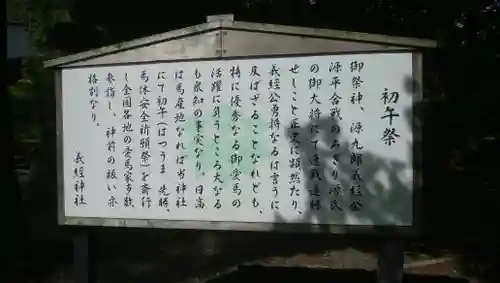 初午祭
御祭神、源九郎義経公
源平合戦のみぎり源氏
の御大将にて連戦連勝
せしこと正史に顕然たり、
義経公勇将なるは言うに
及ばざることなれども、
特に優秀なる御愛馬の
活躍に負うところ大なる
も衆知の事実なり。日高
は馬産地なれば当神社
にて初午(はつうま 先勝、
馬体安全祈願祭)を斎行
し全国各地の愛馬家多数
参詣し、神前の賑い亦
格別なり。
義経神社